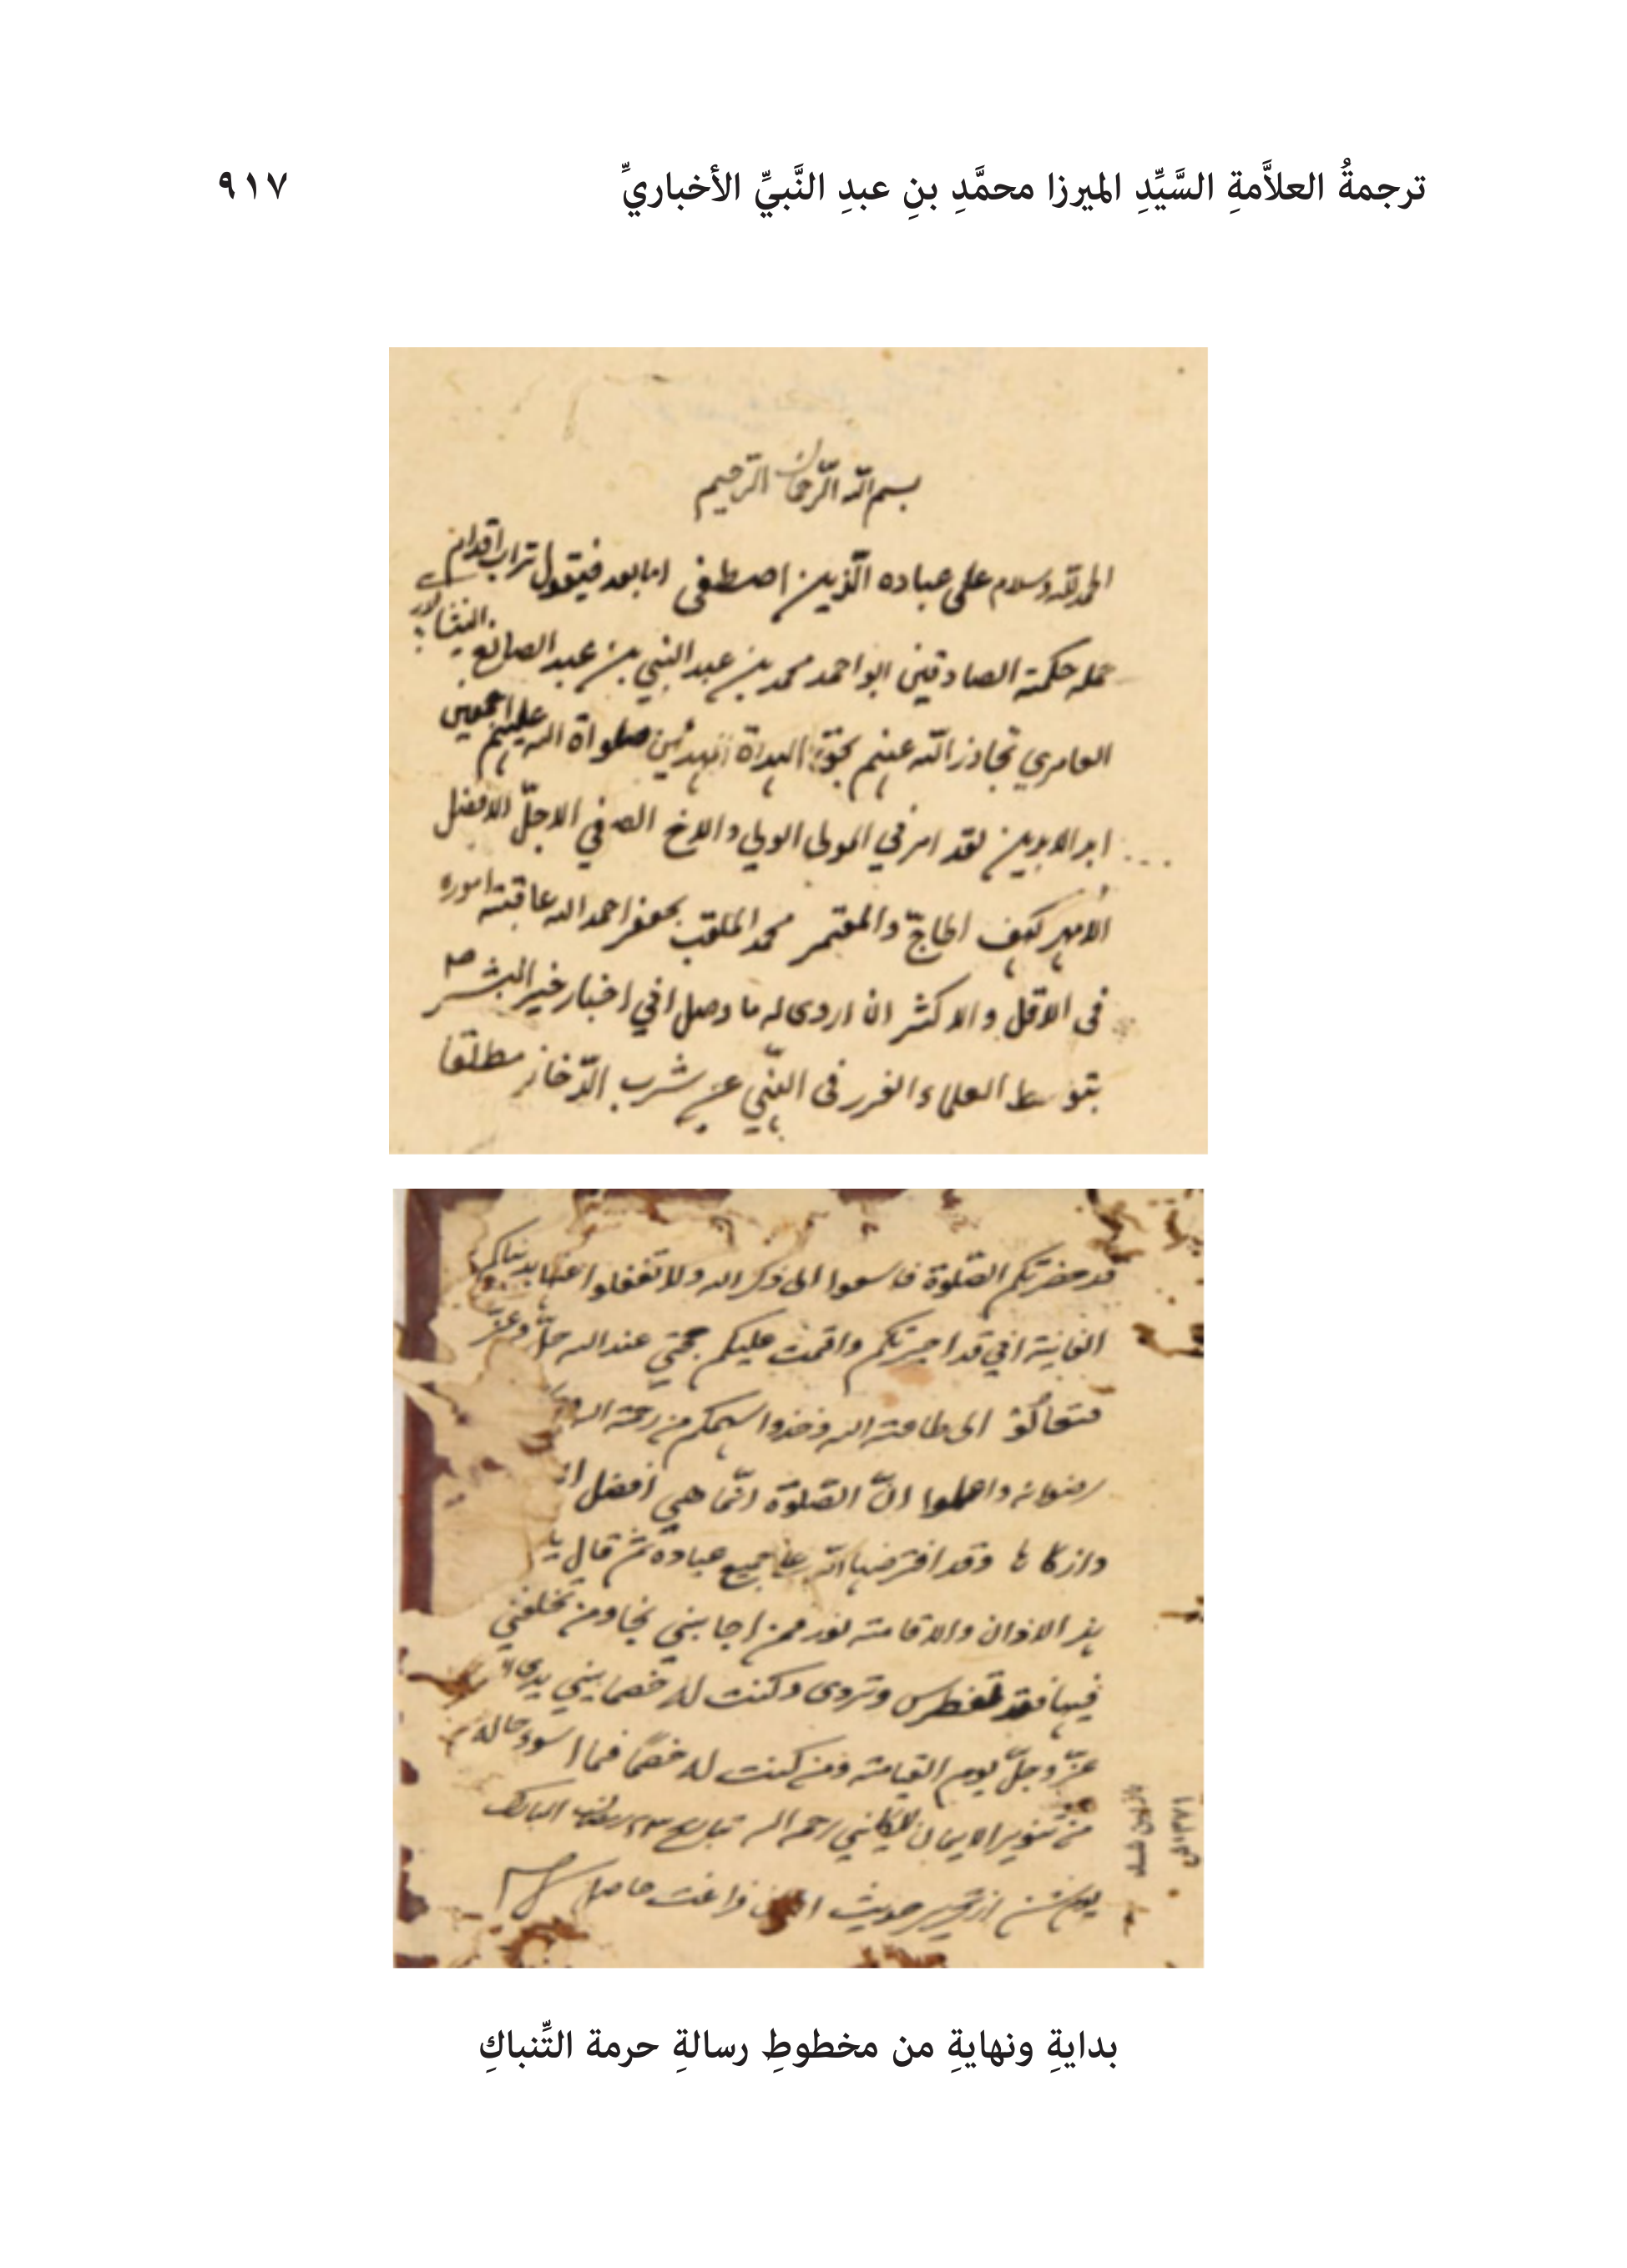 ترجمةُ العلاَّمةِ السَّيِّدِ الميرزا محمَّدِ بنِ عبدِ النَّبيِّ الأخباريِّ ٩١٧
بسم الله الرحمن الرحيم
الحمد لله وسلام على عباده الّذين اصطفى اما بعد فيقول تراب اقدام
حمله حكمة الصادقين ابو احمد محمد بن عبد النبي بن عبد الصانع النيشابوري
العامري تجاوز الله عنهم بحق الهداة المهديين صلواة الله عليهم اجمعين
ابد الابدين لقد امرني المولى الولي والاخ الصفي الاجلّ الافضل
الامهر كهف الحاجّ والمعتمر محمد الملقب بجعفر احمد الله عاقبة اموره
فى الاقل والاكثر ان اروى له ما وصل الي اخبار خير البشر ص
بتوسط العلماء الغرر فى النّهي عن شرب الدّخان مطلقا
قد حضرتكم الصّلوة فاسعوا الى ذكر الله ولا تغفلوا عنها بدنياكم
الفانية اني قد اخبرتكم واقمت عليكم حجتي عند الله جلّ وعزّ
فتعالوا الى طاعة الله وخذوا سهمكم من رحمة الله
رضوانه واعلموا انّ الصّلوة انّما هي افضل
واركانها وقد افترضها الله على جميع عباده ثم قال
الاذان والاقامة نور فمن اجابني نجا ومن تخلفني
فيها فقد تغطرس وتردى وكنت له خصما بين يدى الله
عزّ وجلّ يوم القيامة ومن كنت له خصمًا فما اسوء حاله
من تنوير الايمان للكاني رحمه الله بتاريخ ٢٣ رمضان المبارك
از تحرير حديث فراغت حاصل
بدايةِ ونهايةِ من مخطوطِ رسالةِ حرمة التِّنباكِ